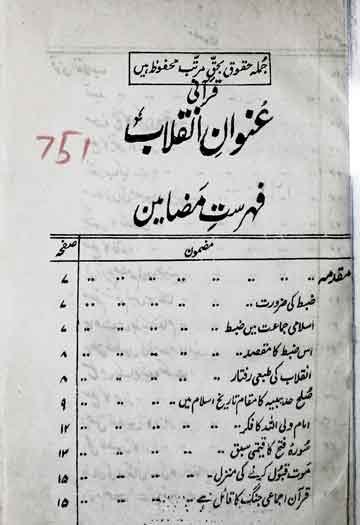 جملہ حقوق بحق مرتب محفوظ ہیں
قرآنی
عنوانِ انقلاب
751
فہرستِ مضامین
مضمون صفحہ
مقدمہ ۷
ضبط کی ضرورت ۷
اسلامی جماعت میں ضبط ۷
اس ضبط کا مقصد ۸
انقلاب کی طبعی رفتار ۸
صلح حدیبیہ کا مقام تاریخ اسلام میں ۹
امام ولی اللہ کا فکر ۱۲
سورۂ فتح کا قیمتی سبق ۱۲
موت قبول کرنے کی منزل ۱۵
قرآن اجماعی جنگ کا قائل ہے ۱۵